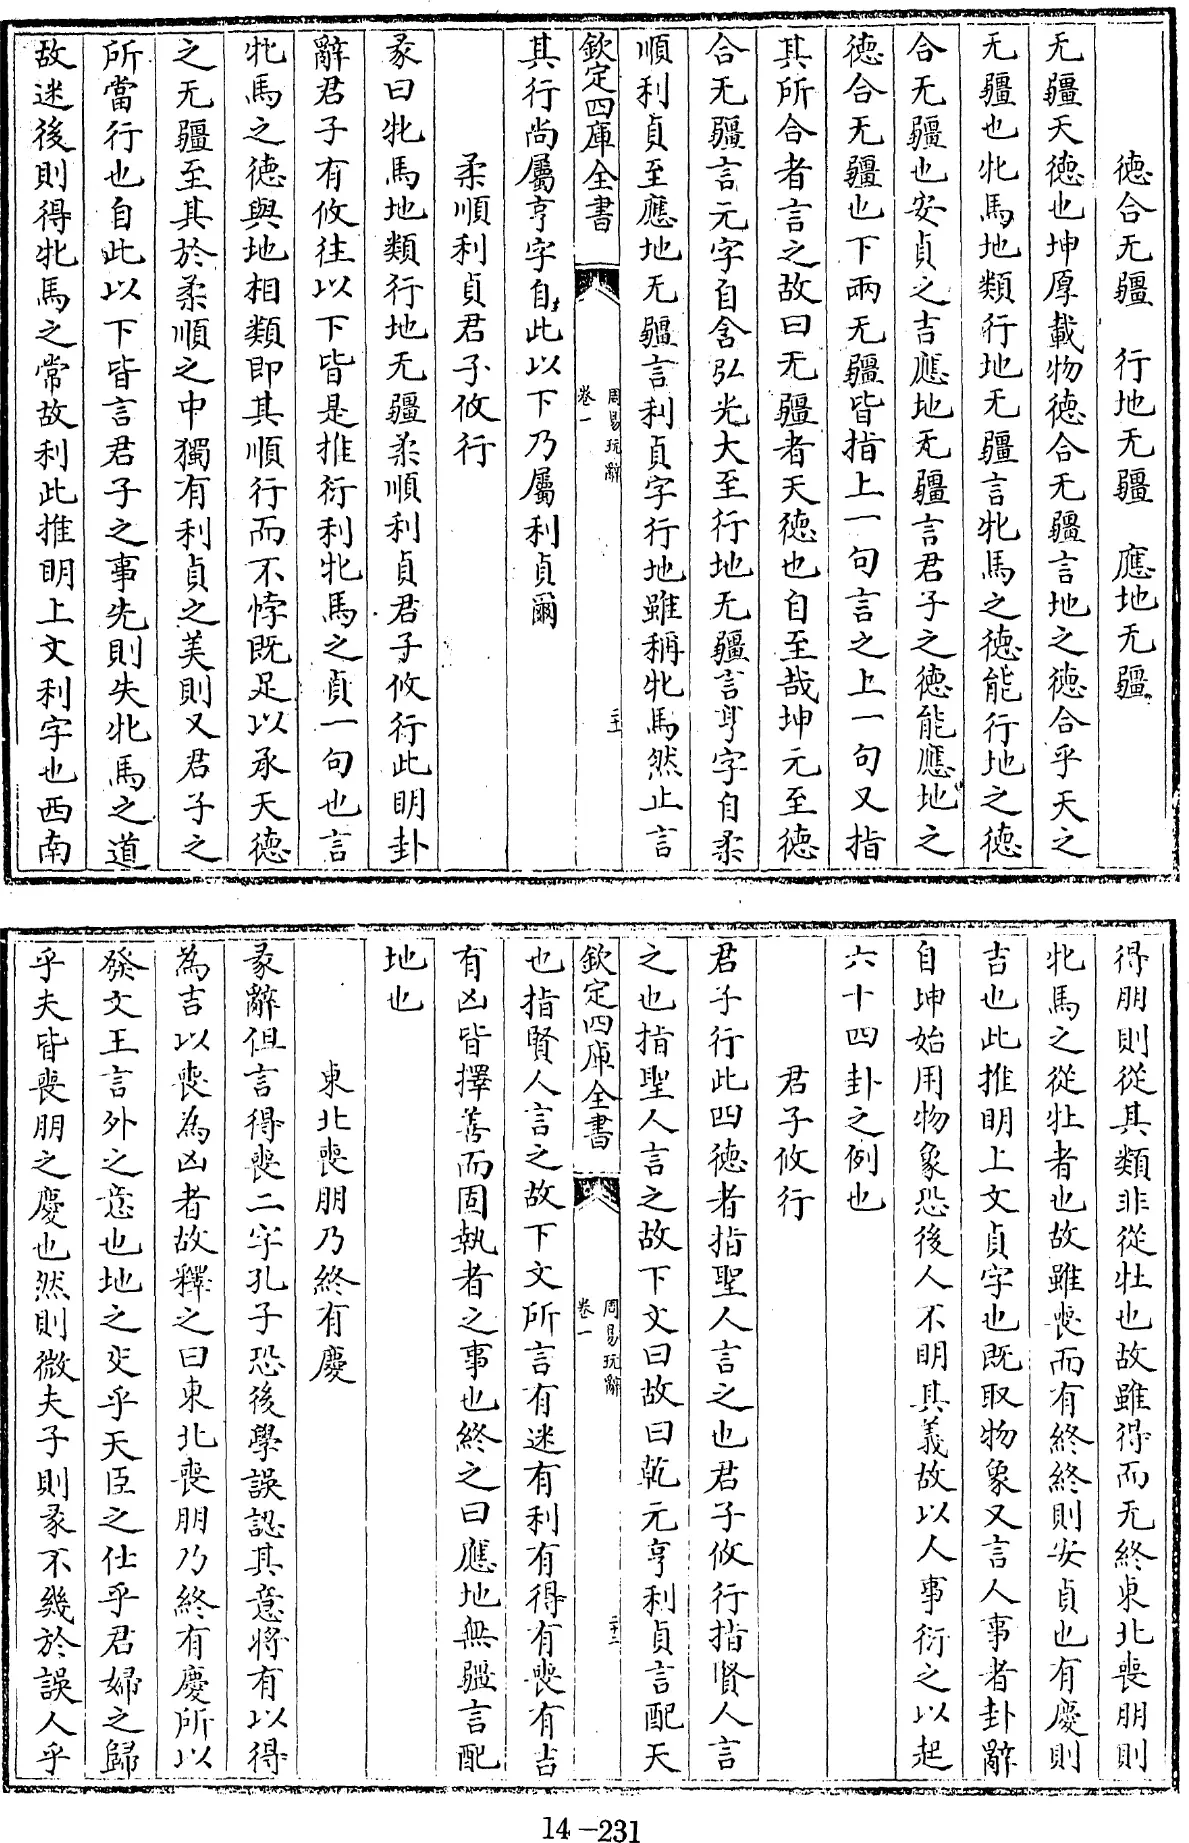 德合无疆　行地无疆　應地无疆
无疆天德也坤厚載物德合无疆言地之德合乎天之
无疆也牝馬地類行地无疆言牝馬之德能行地之德
合无疆也安貞之吉應地无疆言君子之德能應地之
德合无疆也下兩无疆皆指上一句言之上一句又指
其所合者言之故曰无疆者天德也自至哉坤元至德
合无疆言元字自含弘光大至行地无疆言亨字自柔
順利貞至應地无疆言利貞字行地雖稱牝馬然止言
欽定四庫全書
周易玩辭
卷一
二十一
其行尚屬亨字自此以下乃屬利貞爾
柔順利貞君子攸行
彖曰牝馬地類行地无疆柔順利貞君子攸行此明卦
辭君子有攸往以下皆是推衍利牝馬之貞一句也言
牝馬之德與地相類即其順行而不悖既足以承天德
之无疆至其於柔順之中獨有利貞之美則又君子之
所當行也自此以下皆言君子之事先則失牝馬之道
故迷後則得牝馬之常故利此推明上文利字也西南
得朋則從其類非從牡也故雖得而无終東北喪朋則
牝馬之從牡者也故雖喪而有終終則安貞也有慶則
吉也此推明上文貞字也既取物象又言人事者卦辭
自坤始用物象恐後人不明其義故以人事衍之以起
六十四卦之例也
君子攸行
君子行此四德者指聖人言之也君子攸行指賢人言
之也指聖人言之故下文曰故曰乾元亨利貞言配天
欽定四庫全書
周易玩辭
卷一
二十二
也指賢人言之故下文所言有迷有利有得有喪有吉
有凶皆擇善而固執者之事也終之曰應地無疆言配
地也
東北喪朋乃終有慶
彖辭但言得喪二字孔子恐後學誤認其意將有以得
為吉以喪為凶者故釋之曰東北喪朋乃終有慶所以
發文王言外之意也地之交乎天臣之仕乎君婦之歸
乎夫皆喪朋之慶也然則微夫子則彖不幾於誤人乎
14-231